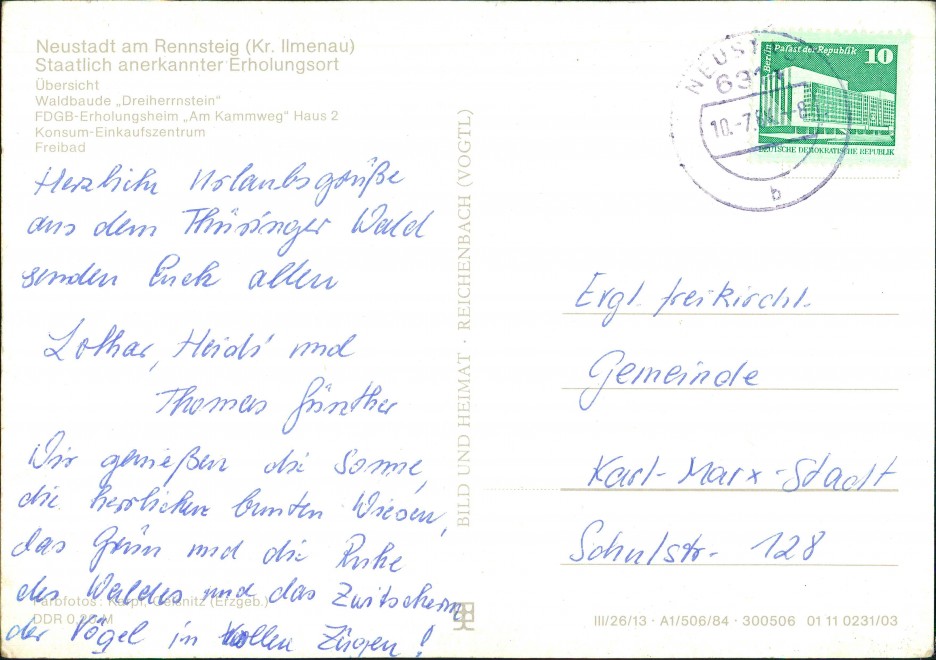 Neustadt am Rennsteig (Kr. Ilmenau)
Staatlich anerkannter Erholungsort
Übersicht
Waldbaude „Dreiherrnstein“
FDGB-Erholungsheim „Am Kammweg“ Haus 2
Konsum-Einkaufszentrum
Freibad
Herzliche Urlaubsgrüße
aus dem Thüringer Wald
senden Euch allen
Lothar, Heidi und
Thomas Günther
Wir genießen die Sonne,
die herrlichen bunten Wiesen,
das Grün und die Ruhe
des Waldes und das Zwitschern
der Vögel in vollen Zügen!
Farbfotos: Karpf, Geisnitz (Erzgeb.)
DDR 0,20 M
BILD UND HEIMAT · REICHENBACH (VOGTL)
Berlin Palast der Republik 10
DEUTSCHE DEMOKRATISCHE REPUBLIK
10.-7.
b
Ergl. freikirchl.
Gemeinde
Karl-Marx-Stadt
Schulstr. 128
III/26/13 · A1/506/84 · 300506 01 11 0231/03